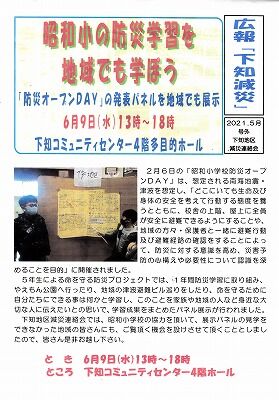 昭和小の防災学習を
地域でも学ぼう
「防災オープンDAY」の発表パネルを地域でも展示
6月9日(水)13時~18時
下知コミュニティセンター4階多目的ホール
広報「下知減災」
2021.5月
号外
下知地区
減災連絡会
2月6日の「昭和小学校防災オープ
ンDAY」は、想定される南海地震・
津波を想定し、「どこにいても生命及び
身体の安全を考えて行動する態度を養
うとともに、校舎の上階、屋上に全員
が安全に避難できるようにすることや、
地域の方々・保護者と一緒に避難行動
及び避難経路の確認をすることによっ
て、防災に対する意識を高め、災害予
防の心構えや必要性について認識を深
めることを目的」に開催されました。
5年生による命を守る防災プロジェクトでは、1年間防災学習に取り組み、
やえもん公園へ行ったり、地域の津波避難ビル巡りをしたり、命を守るために
自分たちにできる事は何かと学習し、このことを家族や地域の人など身近な大
切な人に伝えたいとの思いで、学習成果をまとめたパネル展示が行われました。
下知地区減災連絡会では、昭和小学校の協力を頂いて、展示パネルの見学を
できなかった地域の皆さんにも、ご覧頂く機会を設けさせて頂くこととしまし
たので、皆さん是非お越し下さい。
とき 6月9日(水)13時~18時
ところ 下知コミュニティセンター4階ホール